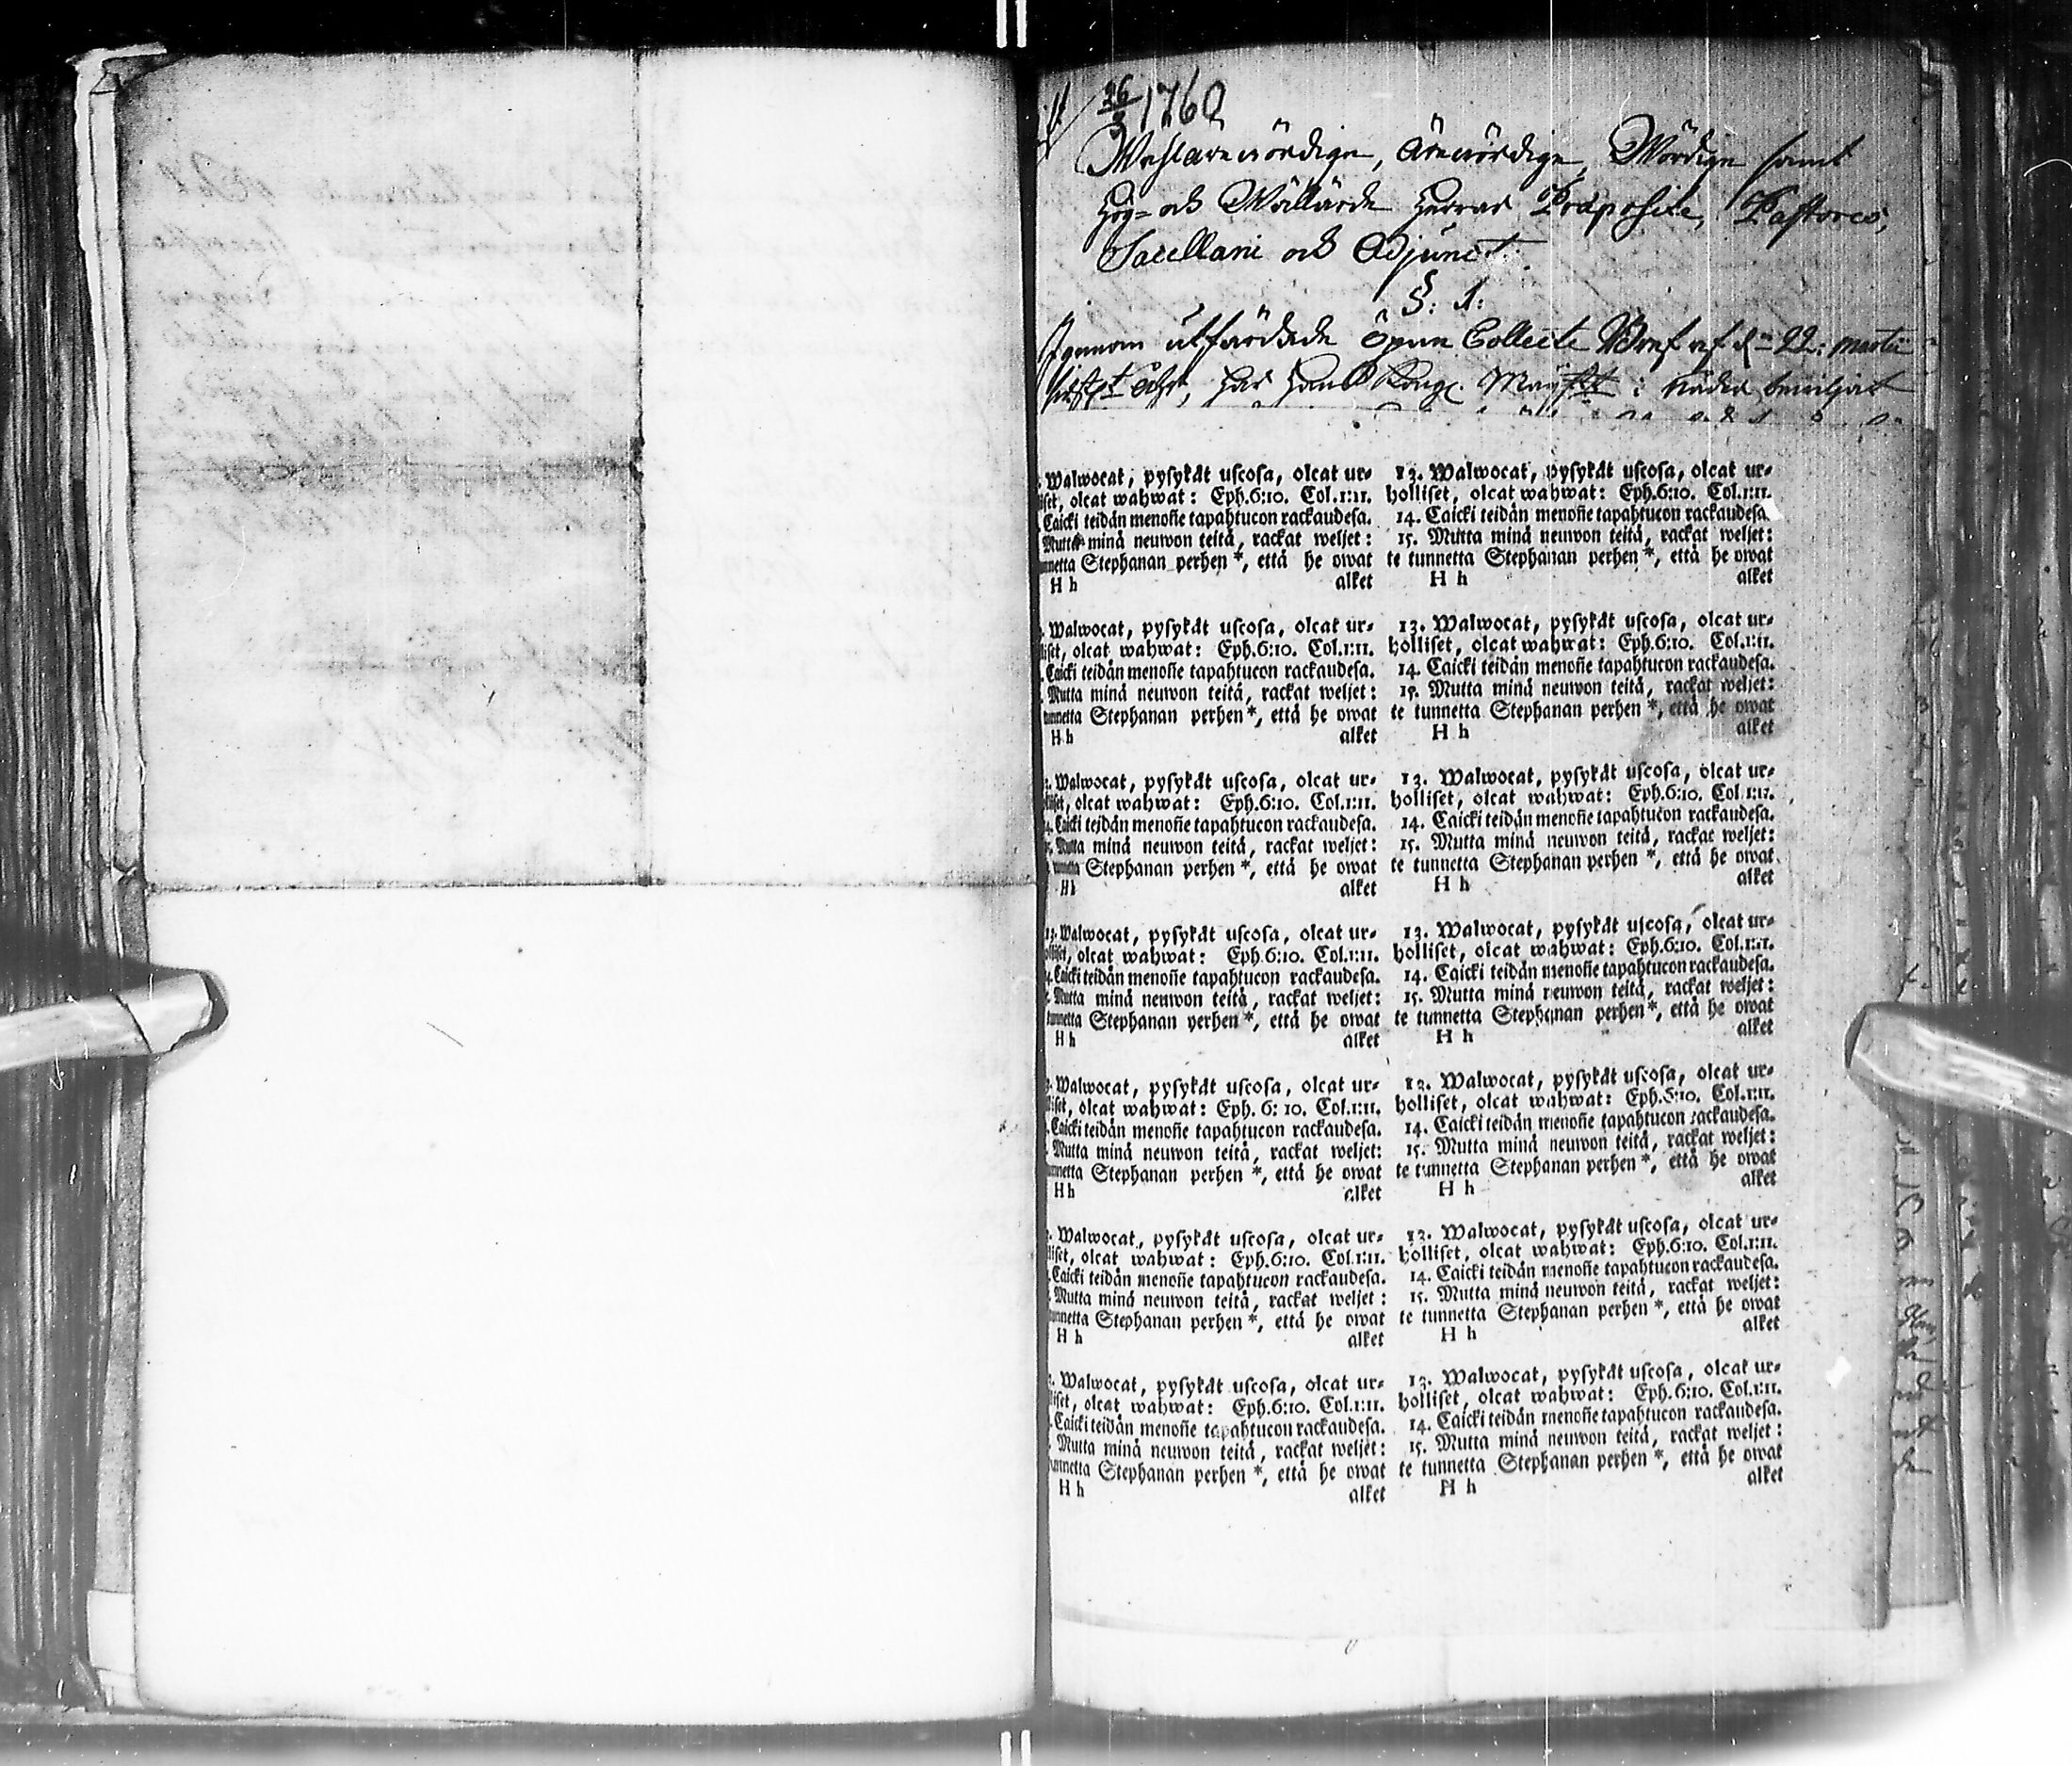 26/3 1760
Wyrdige, Ärewördige, Wördige samt
Hög- och Wällärde Herrar Præposite, Pastores,
Sacellani och Adjunct.
§. 1:
Igenom utfärdade öpne Collecte Bref af dn 22: martii
Kongl. Maijst i nåder
Walwocat, pysykät uscosa, olcat ur-
olcat wahwat: Eph.6:10. Col.1:11.
Caicki teidän menoñe tapahtucon rackaudesa.
Mutta minä neuwon teitä, rackat weljet:
Stephanan perhen *, että he owat
H h alket
13. Walwocat, pysykät uscosa, olcat ur-
holliset, olcat wahwat: Eph.6:10. Col.1:11.
14. Caicki teidän menoñe tapahtucon rackaudesa.
15. Mutta minä neuwon teitä, rackat weljet:
te tunnetta Stephanan perhen *, että he owat
H h alket
Walwocat, pysykät uscosa, olcat ur-
olcat wahwat: Eph.6:10. Col.1:11.
Caicki teidän menoñe tapahtucon rackaudesa.
Mutta minä neuwon teitä, rackat weljet:
Stephanan perhen *, että he owat
H h alket
13. Walwocat, pysykät uscosa, olcat ur-
holliset, olcat wahwat: Eph.6:10. Col.1:11.
14. Caicki teidän menoñe tapahtucon rackaudesa.
15. Mutta minä neuwon teitä, rackat weljet:
te tunnetta Stephanan perhen *, että he owat
H h alket
Walwocat, pysykät uscosa, olcat ur-
olcat wahwat: Eph.6:10. Col.1:11.
Caicki teidän menoñe tapahtucon rackaudesa.
Mutta minä neuwon teitä, rackat weljet:
Stephanan perhen *, että he owat
H h alket
13. Walwocat, pysykät uscosa, olcat ur-
holliset, olcat wahwat: Eph.6:10. Col.1:11.
14. Caicki teidän menoñe tapahtucon rackaudesa.
15. Mutta minä neuwon teitä, rackat weljet:
te tunnetta Stephanan perhen *, että he owat
H h alket
13. Walwocat, pysykät uscosa, olcat ur-
olcat wahwat: Eph.6:10. Col.1:11.
Caicki teidän menoñe tapahtucon rackaudesa.
Mutta minä neuwon teitä, rackat weljet:
Stephanan perhen *, että he owat
H h alket
13. Walwocat, pysykät uscosa, olcat ur-
holliset, olcat wahwat: Eph.6:10. Col.1:11.
14. Caicki teidän menoñe tapahtucon rackaudesa.
15. Mutta minä neuwon teitä, rackat weljet:
te tunnetta Stephanan perhen *, että he owat
H h alket
Walwocat, pysykät uscosa, olcat ur-
olcat wahwat: Eph. 6: 10. Col.1:11.
Caicki teidän menoñe tapahtucon rackaudesa.
Mutta minä neuwon teitä, rackat weljet:
Stephanan perhen *, että he owat
H h alket
13. Walwocat, pysykät uscosa, olcat ur-
holliset, olcat wahwat: Eph.6:10. Col.1:11.
14. Caicki teidän menoñe tapahtucon rackaudesa.
15. Mutta minä neuwon teitä, rackat weljet:
te tunnetta Stephanan perhen *, että he owat
H h alket
Walwocat, pysykät uscosa, olcat ur-
olcat wahwat: Eph.6:10. Col.1:11.
Caicki teidän menoñe tapahtucon rackaudesa.
Mutta minä neuwon teitä, rackat weljet:
Stephanan perhen *, että he owat
H h alket
13. Walwocat, pysykät uscosa, olcat ur-
holliset, olcat wahwat: Eph.6:10. Col.1:11.
14. Caicki teidän menoñe tapahtucon rackaudesa.
15. Mutta minä neuwon teitä, rackat weljet:
te tunnetta Stephanan perhen *, että he owat
H h alket
Walwocat, pysykät uscosa, olcat ur-
olcat wahwat: Eph.6:10. Col.1:11.
Caicki teidän menoñe tapahtucon rackaudesa.
Mutta minä neuwon teitä, rackat weljet:
Stephanan perhen *, että he owat
H h alket
13. Walwocat, pysykät uscosa, olcat ur-
holliset, olcat wahwat: Eph.6:10. Col.1:11.
14. Caicki teidän menoñe tapahtucon rackaudesa.
15. Mutta minä neuwon teitä, rackat weljet:
te tunnetta Stephanan perhen *, että he owat
H h alket